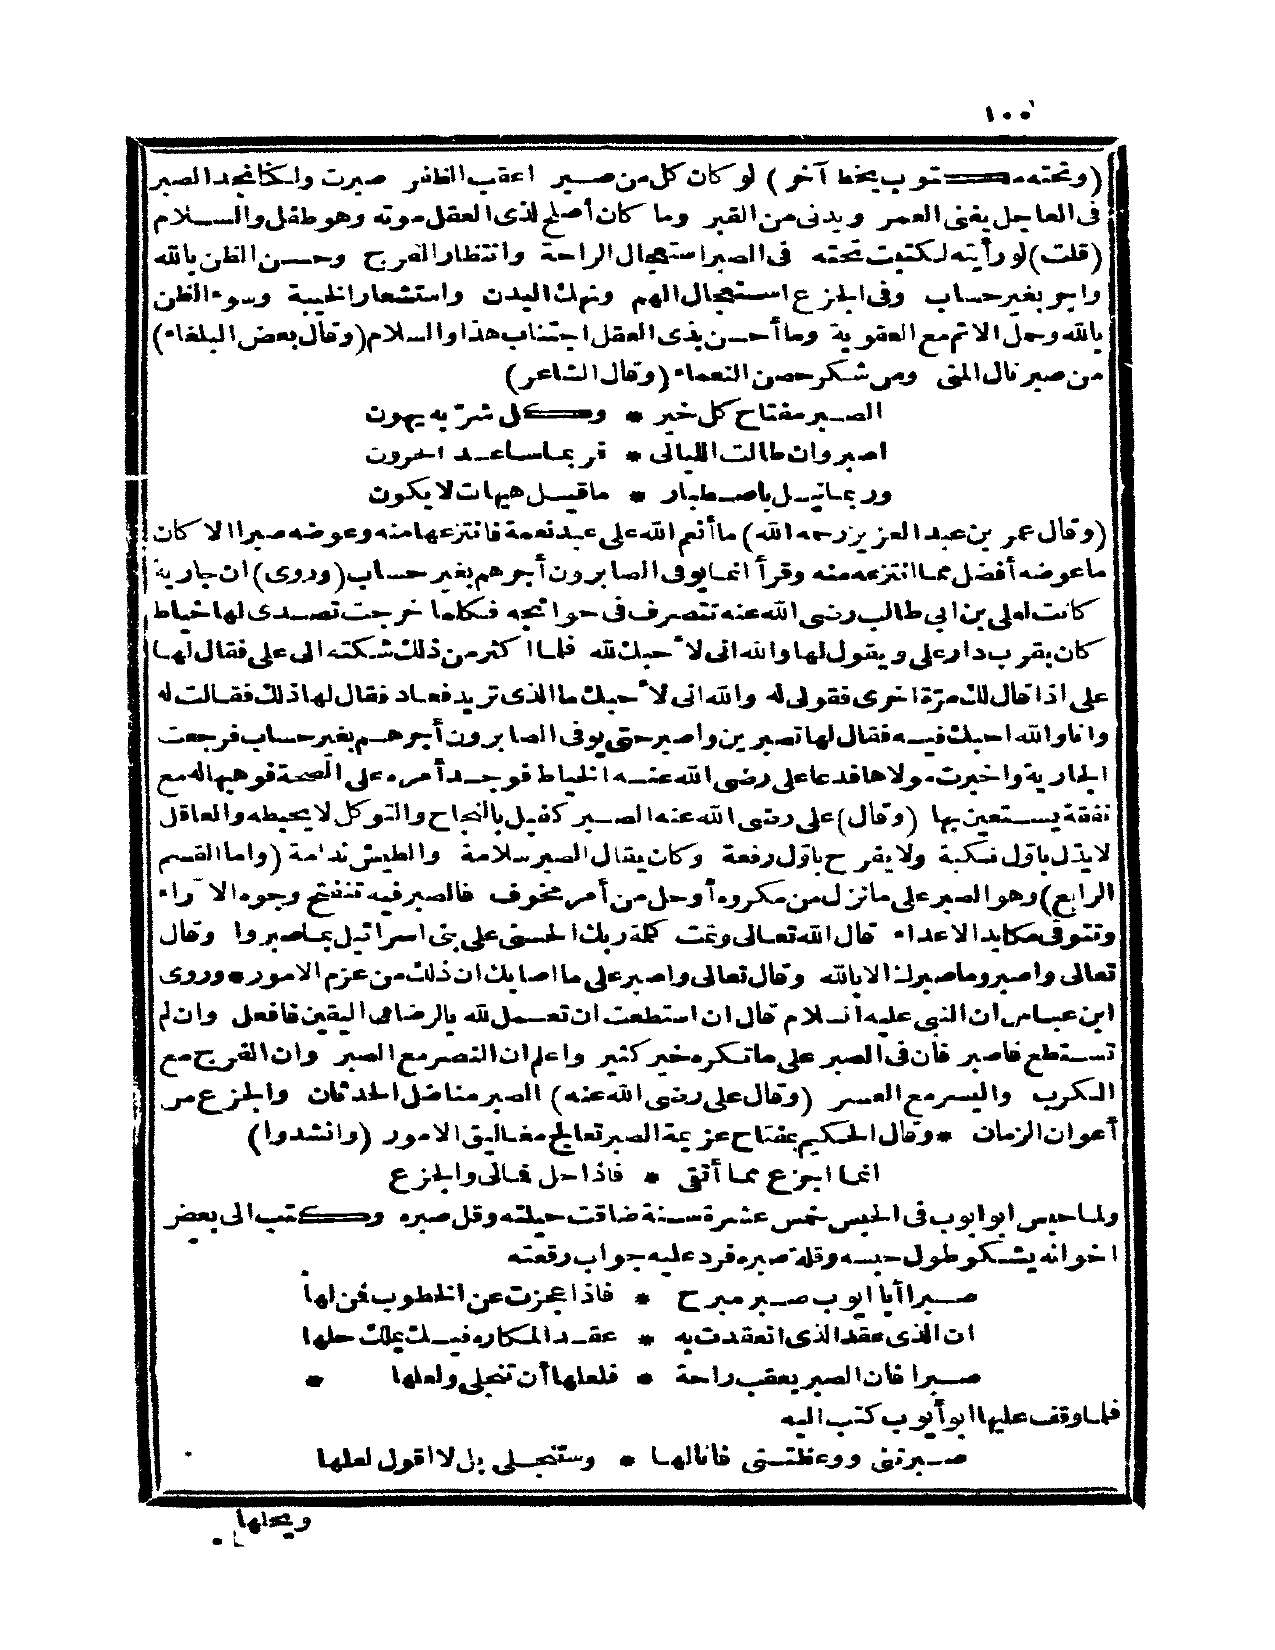 ١٠٠
(وتحته مكتوب بخط آخر) لو كان كل من صبر اعقب الظفر صبرت ولكنا نجد الصبر
فى العاجل يفنى العمر ويدنى من القبر وما كان أصلح لذى العقل موته وهو طفل والسلام
(قلت) لو رأيته لكتبت تحته فى الصبر استعجال الراحة وانتظار الفرج وحسن الظن بالله
واجر بغير حساب وفى الجزع استعجال الهم ونهك البدن واستشعار الخيبة وسوء الظن
بالله وحمل الاثم مع العقوبة وما أحسن بذى العقل اجتناب هذا والسلام (وقال بعض البلغاء)
من صبر نال المنى ومن شكر حصن النعماء (وقال الشاعر)
الصبر مفتاح كل خير * وكل شرّ به يهون
اصبر وان طالت الليالى * فربما ساعد الحرون
وربما نيل باصطبار * ماقيل هيهات لا يكون
(وقال عمر بن عبد العزيز رحمه الله) ما أنعم الله على عبد نعمة فانتزعها منه وعوضه صبرا الا كان
ما عوضه أفضل مما انتزعه منه وقرأ انما يوفى الصابرون أجرهم بغير حساب (وروى) ان جارية
كانت لعلى بن ابى طالب رضى الله عنه تتصرف فى حوائجه فكلما خرجت تصدى لها خياط
كان بقرب دار على ويقول لها والله انى لأحبك لله فلما اكثر من ذلك شكته الى على فقال لها
على اذا قال لك مرّة اخرى فقولى له والله انى لأحبك ما الذى تريد فعاد فقال لها ذلك فقالت له
وانا والله احبك فيه فقال لها تصبرين واصبر حتى يوفى الصابرون أجرهم بغير حساب فرجعت
الجارية واخبرت مولاها فدعا على رضى الله عنه الخياط فوجد أمره على الصحة فوهبها له مع
نفقة يستعين بها (وقال) على رضى الله عنه الصبر كفيل بالنجاح والتوكل لا يحيطه والعاقل
لا يذل باوّل نكبة ولا يفرح باوّل رفعة وكان يقال الصبر سلامة والطيش ندامة (واما القسم
الرابع) وهو الصبر على ما نزل من مكروه أو حل من أمر مخوف فالصبر فيه تنفتح وجوه الآراء
وتتوقى مكايد الاعداء قال الله تعالى وتمت كلمة ربك الحسنى على بنى اسرائيل بما صبروا وقال
تعالى واصبر وما صبرك الا بالله وقال تعالى واصبر على ما اصابك ان ذلك من عزم الامور * وروى
ابن عباس ان النبى عليه السلام قال ان استطعت ان تعمل لله بالرضا فى اليقين فافعل وان لم
تستطع فاصبر فان فى الصبر على ما تكره خير كثير واعلم ان النصر مع الصبر وان الفرج مع
الكرب واليسر مع العسر (وقال على رضى الله عنه) الصبر مناضل الحدثان والجزع من
أعوان الزمان * وقال الحكيم بمفتاح عزيمة الصبر تعالج مغاليق الامور (وانشدوا)
انما اجزع مما أتقى * فاذا حل فمالى والجزع
ولما حبس ابو ايوب فى الحبس خمس عشرة سنة ضاقت حيلته وقل صبره وكتب الى بعض
اخوانه يشكو طول حبسه وقلة صبره فرد عليه جواب رقعته
صبرا أبا ايوب صبر مبرح * فاذا عجزت عن الخطوب فمن لها
ان الذى عقد الذى انعقدت به * عقد المكاره فيك يملك حلها
صبرا فان الصبر يعقب راحة * فلعلها أن تنجلى ولعلها *
فلما وقف عليها ابو أيوب كتب اليه
صبرتنى ووعظتنى فانا لها * وستنجلى بل لا اقول لعلها
ويحلها